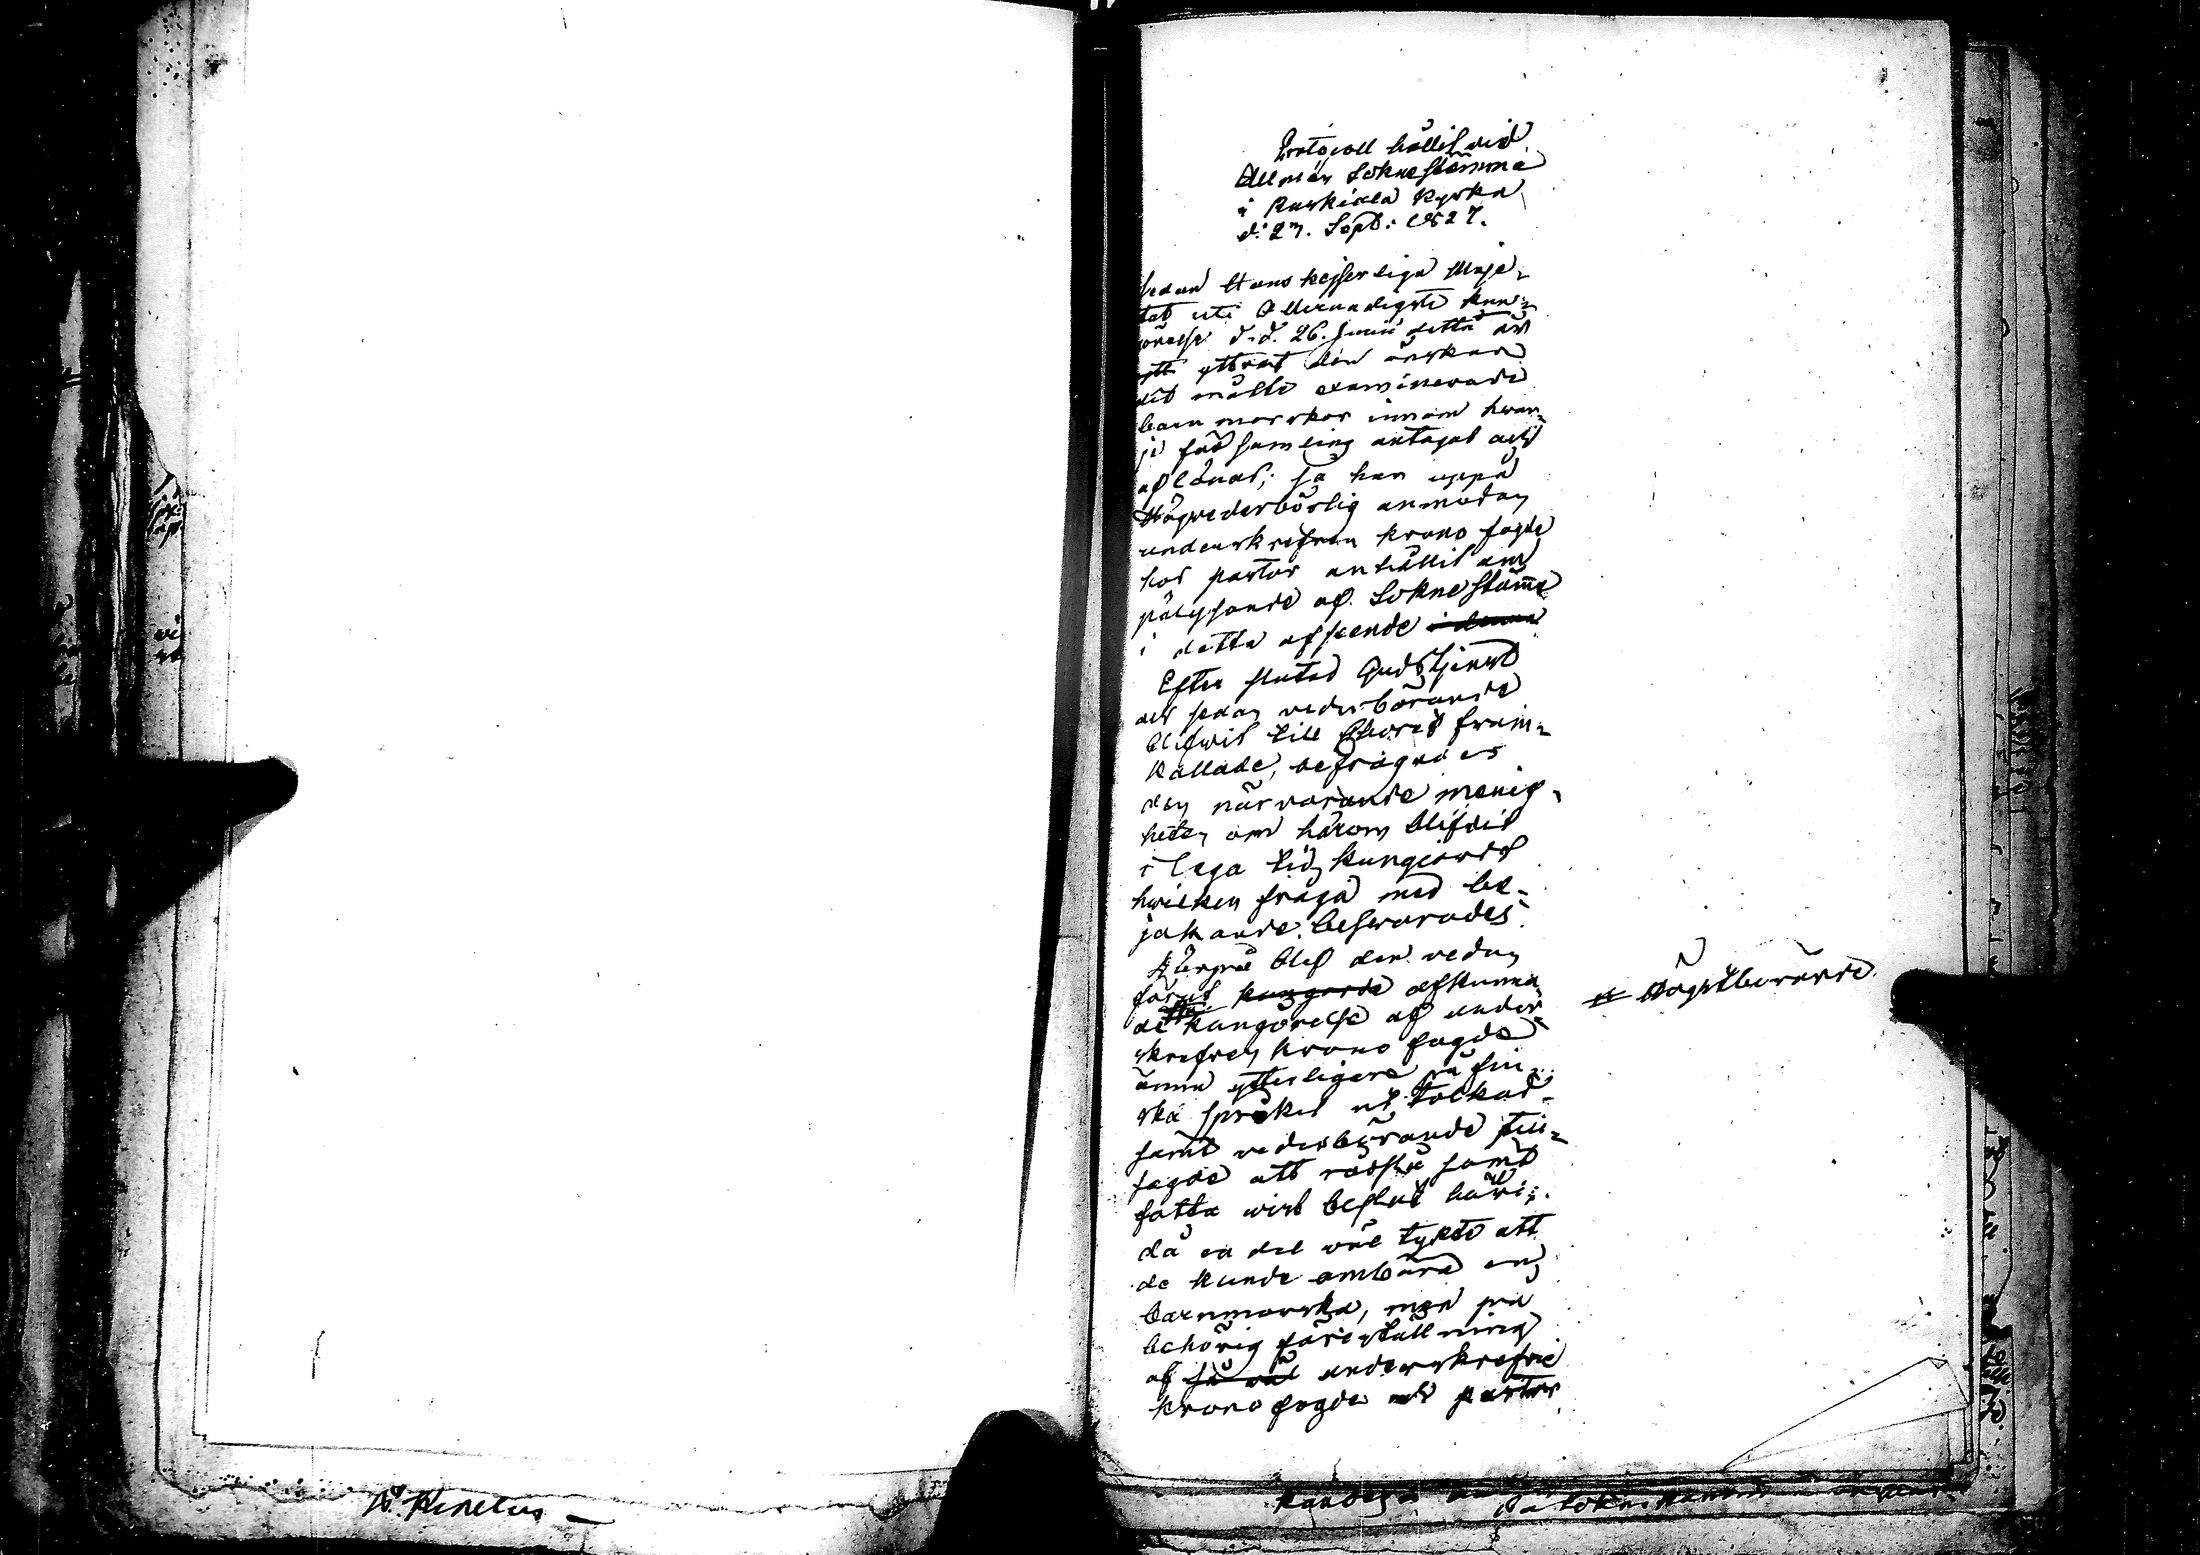 Protocoll hållit vid
Allmän Sokne stämma
i Ruskiala Kyrka
d: 23. Sept: 1827.
Sedan Hans Kejserliga Maje-
tät uti Allernådigste kun-
görelse d.d. 26. Junii detta år
yttrat den önskan
att måtte examinerade
barnmorskor innom hvar-
je församling antagas och
aflönas; så har uppå
Högvederbörlig anmodan
underskrefven Krono fogde
hos pastor anhållit om
pålysande af Sokne stämma
i detta afseende i denna
Efter slutad Gudstjenst
och sedan vederbörande
blifwit till Choret fram-
kallade, befrågades
den närvarande menig-
heten om härom blifvit
i laga tid kungjordt
hvilken fråga med be-
jakande besvarades.
Härpå blef den redan
förut kungjorde afkunna-
de kungörelse af under-
skrefven Krono fogde
ännu ytterligare på fin-
ska språket uttolkad
samt vederbörande till-
sagde att rådslå samt
fatta wist beslut häri;
då en del väl tykte att
de kunde ombära en
barnmorska, men på
behörig föreställning
af så väl underskrefne
Krono fogde och pastor
# Högstberörde
N. Kinelius